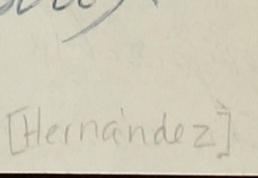 [Hernández]